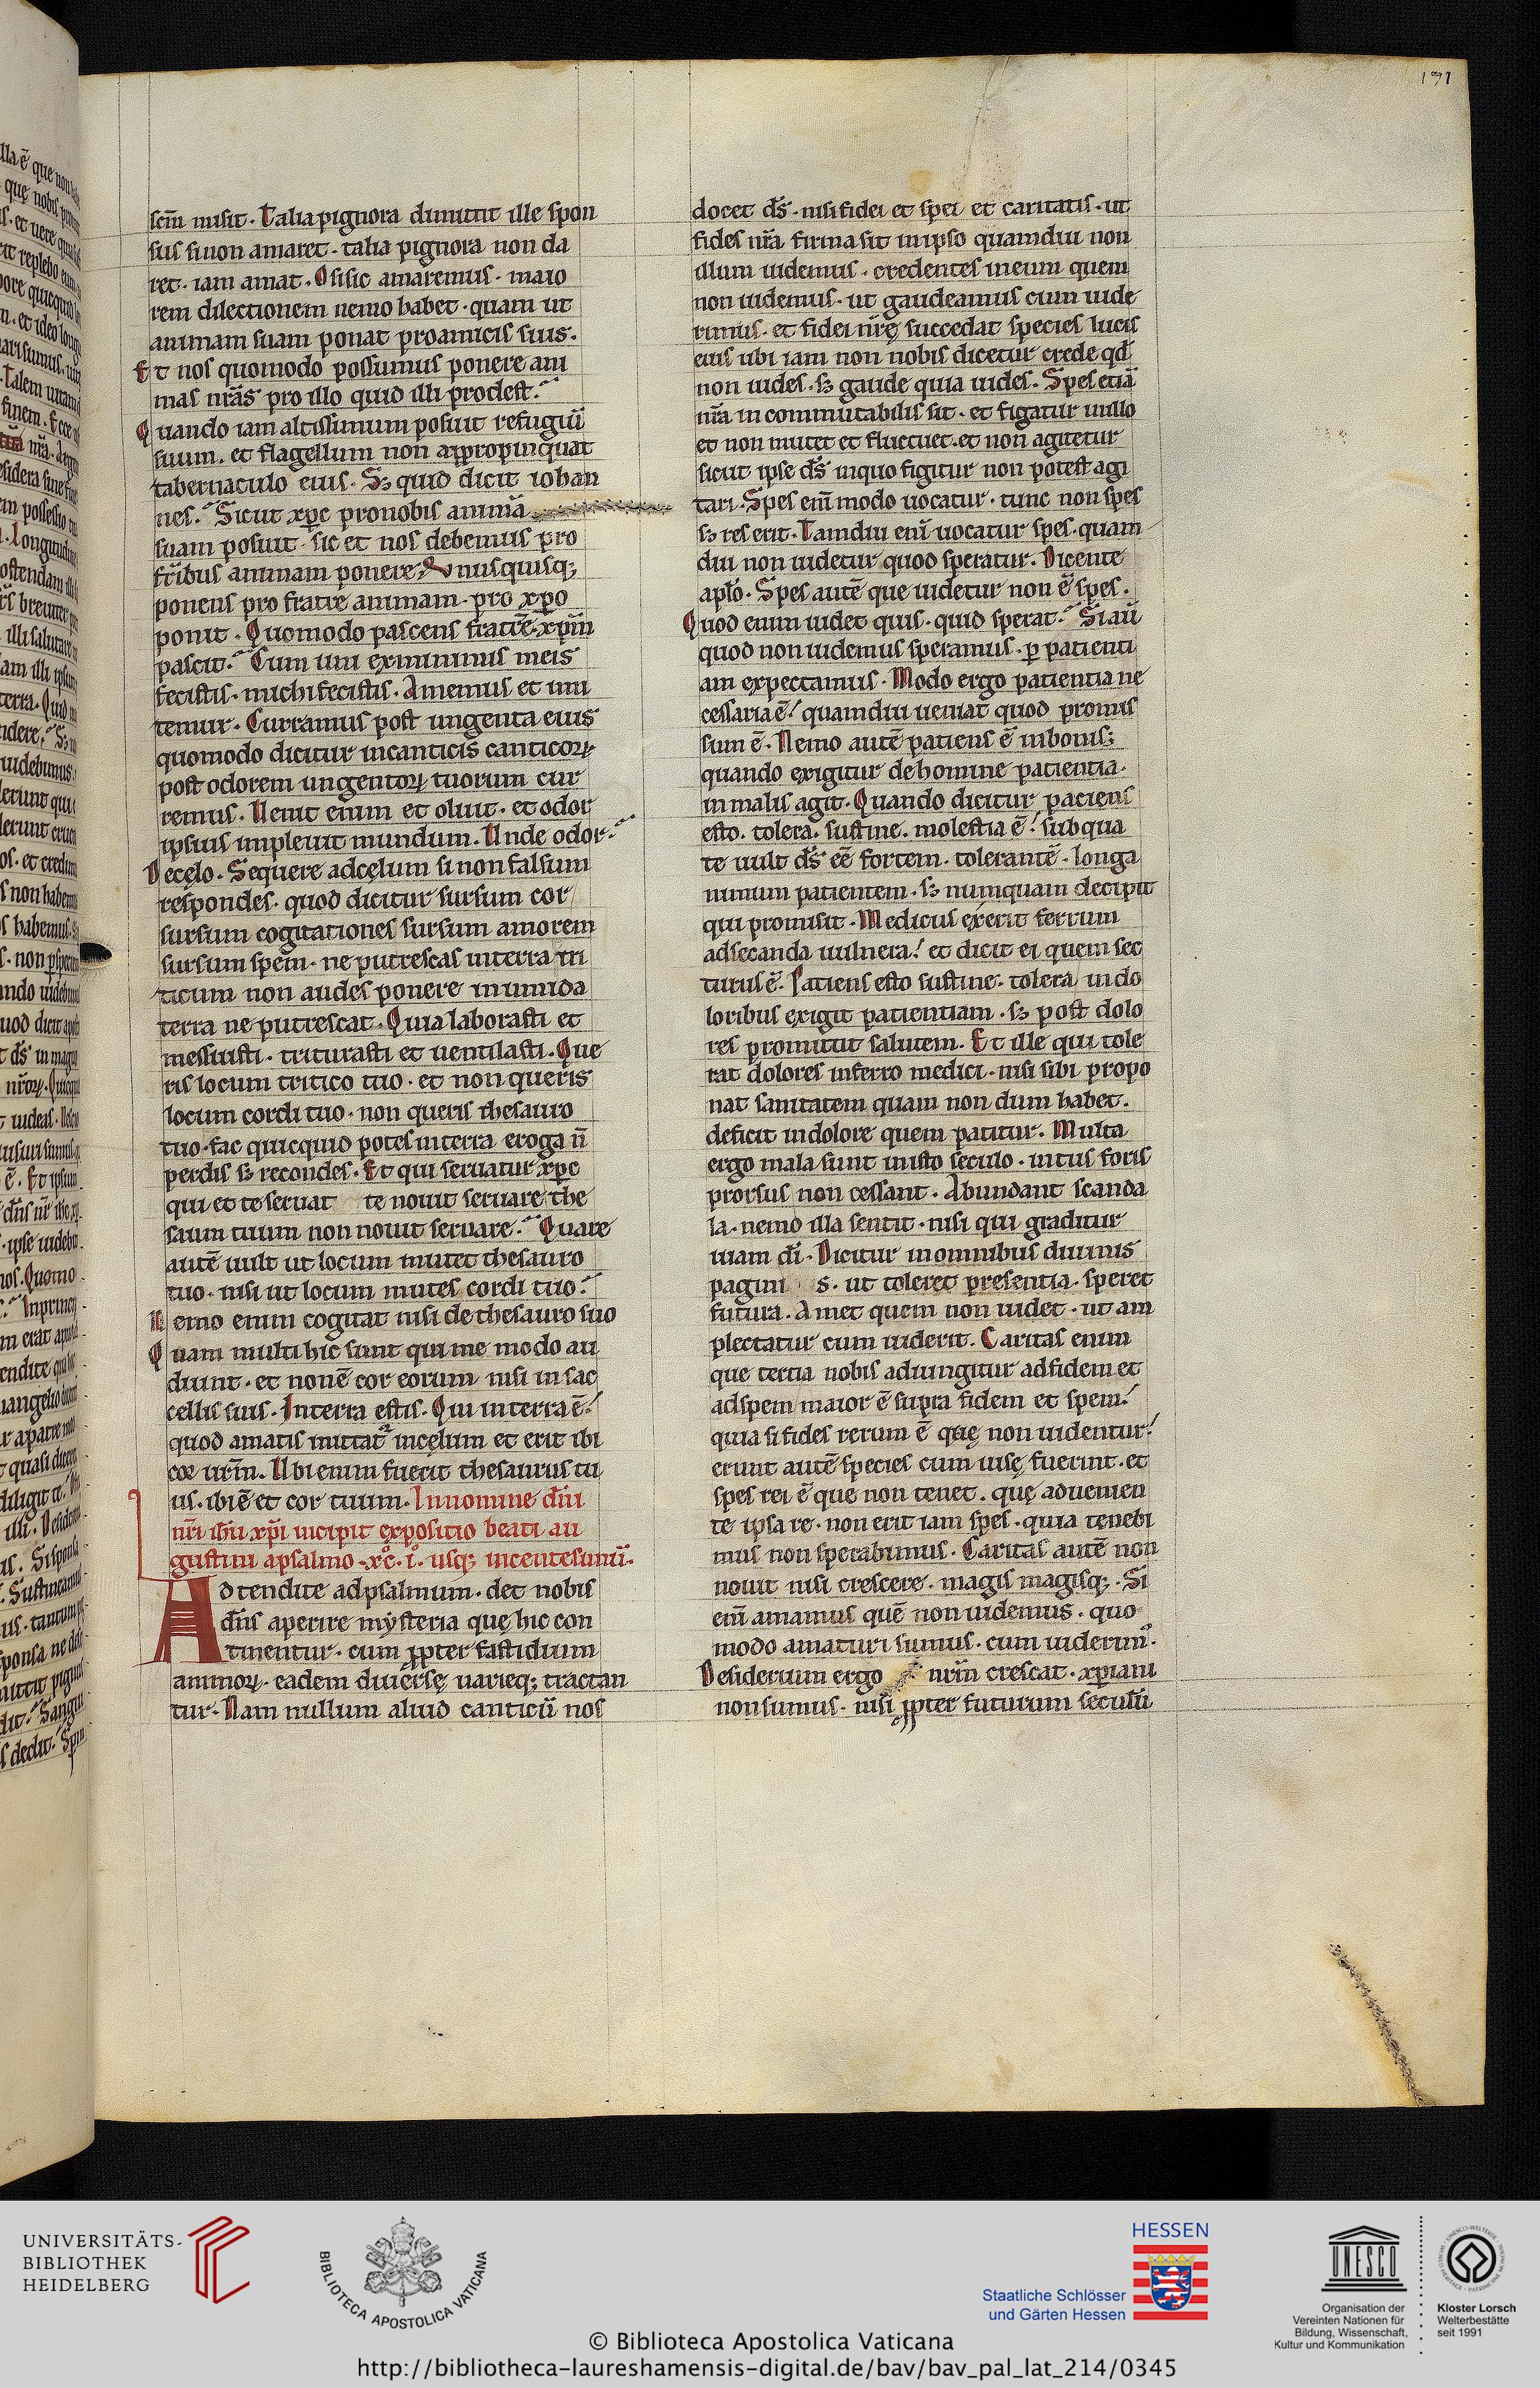 171
scm̄ misit. Talia pignora dimittit ille spon
sus si non amaret. talia pignora non da
ret. iam amat. O si sic amaremus. maio
rem dilectionem nemo habet. quam ut
animam suam ponat pro amicis suis.
Et nos quomodo possumus ponere ani
mas nrās pro illo quid illi prodest.
Quando iam altissimum posuit refugiū
suum. et flagellum non appropinquat
tabernaculo eius. Sʒ quid dicit iohan
nes. Sicut xp̄c pro nobis animā
suam posuit. sic et nos debemus pro
fr̄ibus animam ponere. Vnusquisqʒ
ponens pro fratre animam. pro xp̄o
ponit. Quomodo pascens fratrē. xp̄m
pascit. Cum uni ex minimis meis
fecistis. michi fecistis. Amemus et imi
temur. Curramus post ungenta eius
quomodo dicitur in canticis canticoꝝ
post odorem ungentoꝝ tuorum cur
remus. Venit enim et oluit. et odor
ipsius impleuit mundum. Unde odor.
De cęlo. Sequere ad cęlum si non falsum
respondes. quod dicitur sursum cor
sursum cogitationes sursum amorem
sursum spem. ne putrescas in terra tri
ticum non audes ponere in umida
terra ne putrescat. Quia laborasti et
messuisti. triturasti et uentilasti. Que
ris locum tritico tuo. et non queris
locum cordi tuo. non queris thesauro
tuo. fac quicquid potes in terra eroga n̄
perdis sʒ recondes. Et qui seruatur xp̄c
qui et te seruat te nouit seruare the
saum tuum non nouit seruare. Quare
autē uult ut locum mutet thesauro
tuo. nisi ut locum mutes cordi tuo.
Nemo enim cogitat nisi de thesauro suo
Quam multi hic sunt qui me modo au
diunt. et non ē cor eorum nisi in sac
cellis suis. In terra estis. Qui in terra ē
quod amatis mittat in cęlum et erit ibi
cor urm̄. Vbi enim fuerit thesaurus tu
us. ibi ē et cor tuum. In nomine dn̄i
nr̄i ihū xp̄i incipit expositio beati au
gustini a psalmo .xc. i. usqʒ in centesimū.
Adtendite ad psalmum. det nobis
dn̄s aperire mysteria quę hic con
tinentur. cum ꝓpter fastidium
animoꝝ. eadem diuersę uarieqʒ tractan
tur. Nam nullum aliud canticū nos
docet dꝭ. nisi fidei et spei et caritatis. ut
fides nr̄a firma sit in ipso quamdiu non
illum uidemus. credentes in eum quem
non uidemus. ut gaudeamus cum uide
rimus. et fidei nr̄ę succedat species lucis
eius ubi iam non nobis dicetur crede qđ
non uides. sʒ gaude quia uides. Spes etiā
nr̄a in commutabilis sit. et figatur in illo
et non mutet et fluctuet. et non agitetur
sicut ipse ds̄ in quo figitur non potest agi
tari. Spes enī modo uocatur. tunc non spes
sʒ res erit. Tamdiu enī uocatur spes. quam
diu non uidetur quod speratur. Dicente
apl̄o. Spes autē que uidetur non ē spes.
Quod enim uidet quis. quid sperat. Si aū
quod non uidemus speramus. p patienti
am expectamus. Modo ergo patientia ne
cessaria ē! quamdiu ueniat quod promis
sum ē. Nemo autē patiens ē in bonis;
quando exigitur de homine patientia.
in malis agit. Quando dicitur paciens
esto. tolera. sustine. molestia ē! sub qua
te uult ds̄ eē fortem. tolerantē. longa
nimum patientem. sʒ numquam decipit
qui promisit. Medicus exerit ferrum
ad secanda uulnera! et dicit ei quem sec
turus ē. Patiens esto sustine. tolera in do
loribus exigit patientiam. sʒ post dolo
res promittit salutem. Et ille qui tole
rat dolores in ferro medici. nisi sibi propo
nat sanitatem quam non dum habet.
deficit in dolore quem patitur. Multa
ergo mala sunt in isto seculo. intus foris
prorsus non cessant. Abundant scanda
la. nemo illa sentit. nisi qui graditur
uiam dī. Dicitur in omnibus diuinis
pagini s. ut toleret presentia. speret
futura. Amet quem non uidet. ut am
plectatur cum uiderit. Caritas enim
que tertia nobis adiungitur ad fidem et
ad spem maior ē supra fidem et spem!
quia si fides rerum ē quę non uidentur!
erunt autē species cum uisę fuerint. et
spes rei ē que non tenet. quę aduenien
te ipsa re. non erit iam spes. quia tenebi
mus non sperabimus. Caritas autē non
nouit nisi crescere. magis magisqʒ. Si
enī amamus quē non uidemus. quo
modo amaturi sumus. cum uiderim᾿.
Desiderium ergo nrm̄ crescat. xp̄iani
non sumus. nisi ꝓpter futurum seculū
UNIVERSITÄTS-
BIBLIOTHEK
HEIDELBERG
BIBLIOTECA APOSTOLICA VATICANA
HESSEN
Staatliche Schlösser
und Gärten Hessen
UNESCO
Organisation der
Vereinten Nationen für
Bildung, Wissenschaft,
Kultur und Kommunikation
Kloster Lorsch
Welterbestätte
seit 1991
© Biblioteca Apostolica Vaticana
http://bibliotheca-laureshamensis-digital.de/bav/bav_pal_lat_214/0345